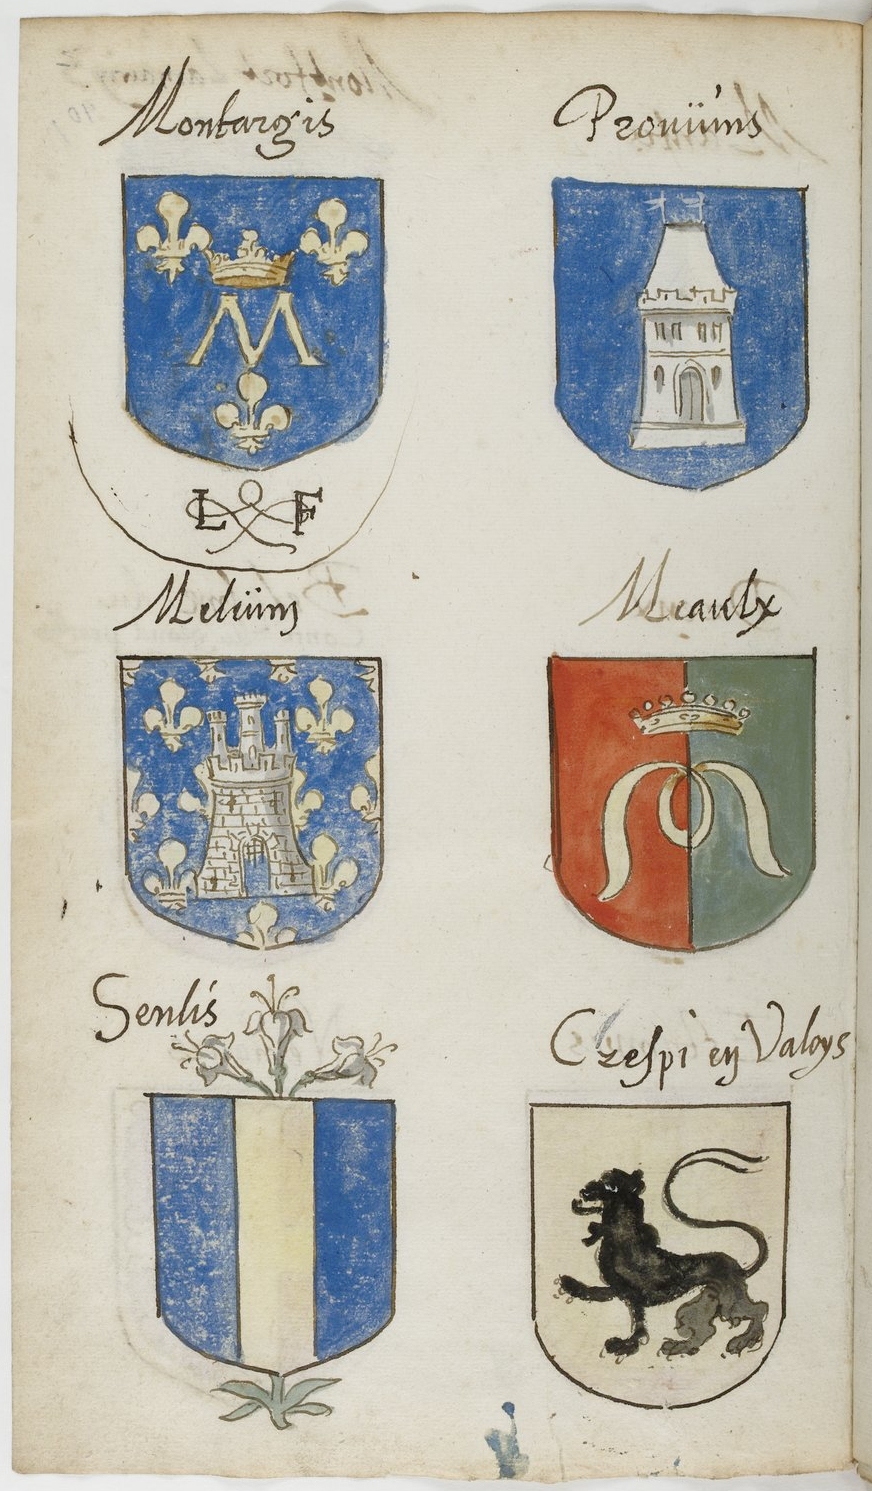 Montargis
Provins
M
L F
Melün
Meaulx
Senlis
Crespi en Valoys